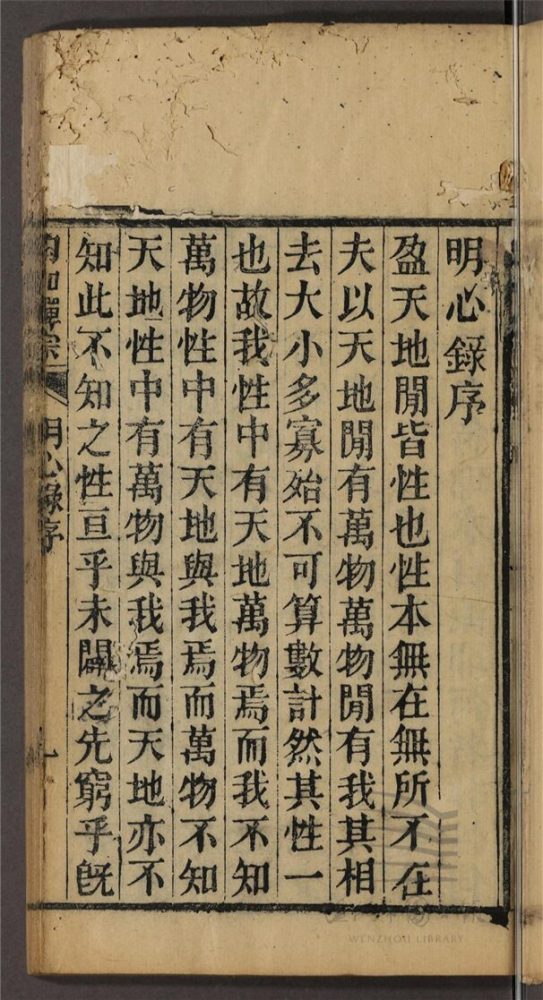 明心錄序
盈天地閒皆性也性本無在無所不在
夫以天地閒有萬物萬物閒有我其相
去大小多寡始不可算數計然其性一
也故我性中有天地萬物焉而我不知
萬物性中有天地與我焉而萬物不知
天地性中有萬物與我焉而天地亦不
知此不知之性亘乎未闢之先窮乎旣
明心錄序
一
WENZHOU LIBRARY